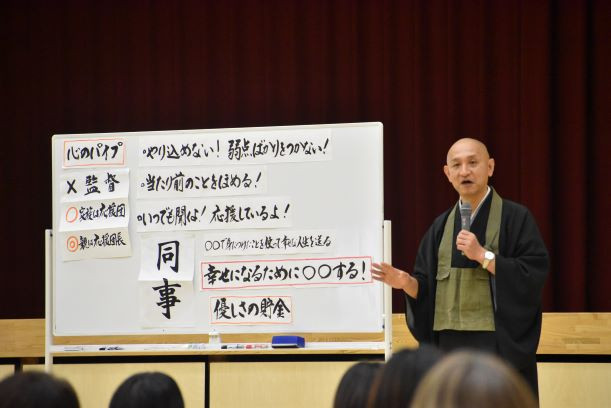 心のパイプ
・やり込めない！弱点ばかりをつかない！
×監督
・当たり前のことをほめる！
○家族は応援団
・いつでも聞くよ！応援しているよ！
◎親は応援団長
同事
○○で身につけたことを使って幸せな人生を送る
幸せになるために○○する！
優しさの貯金